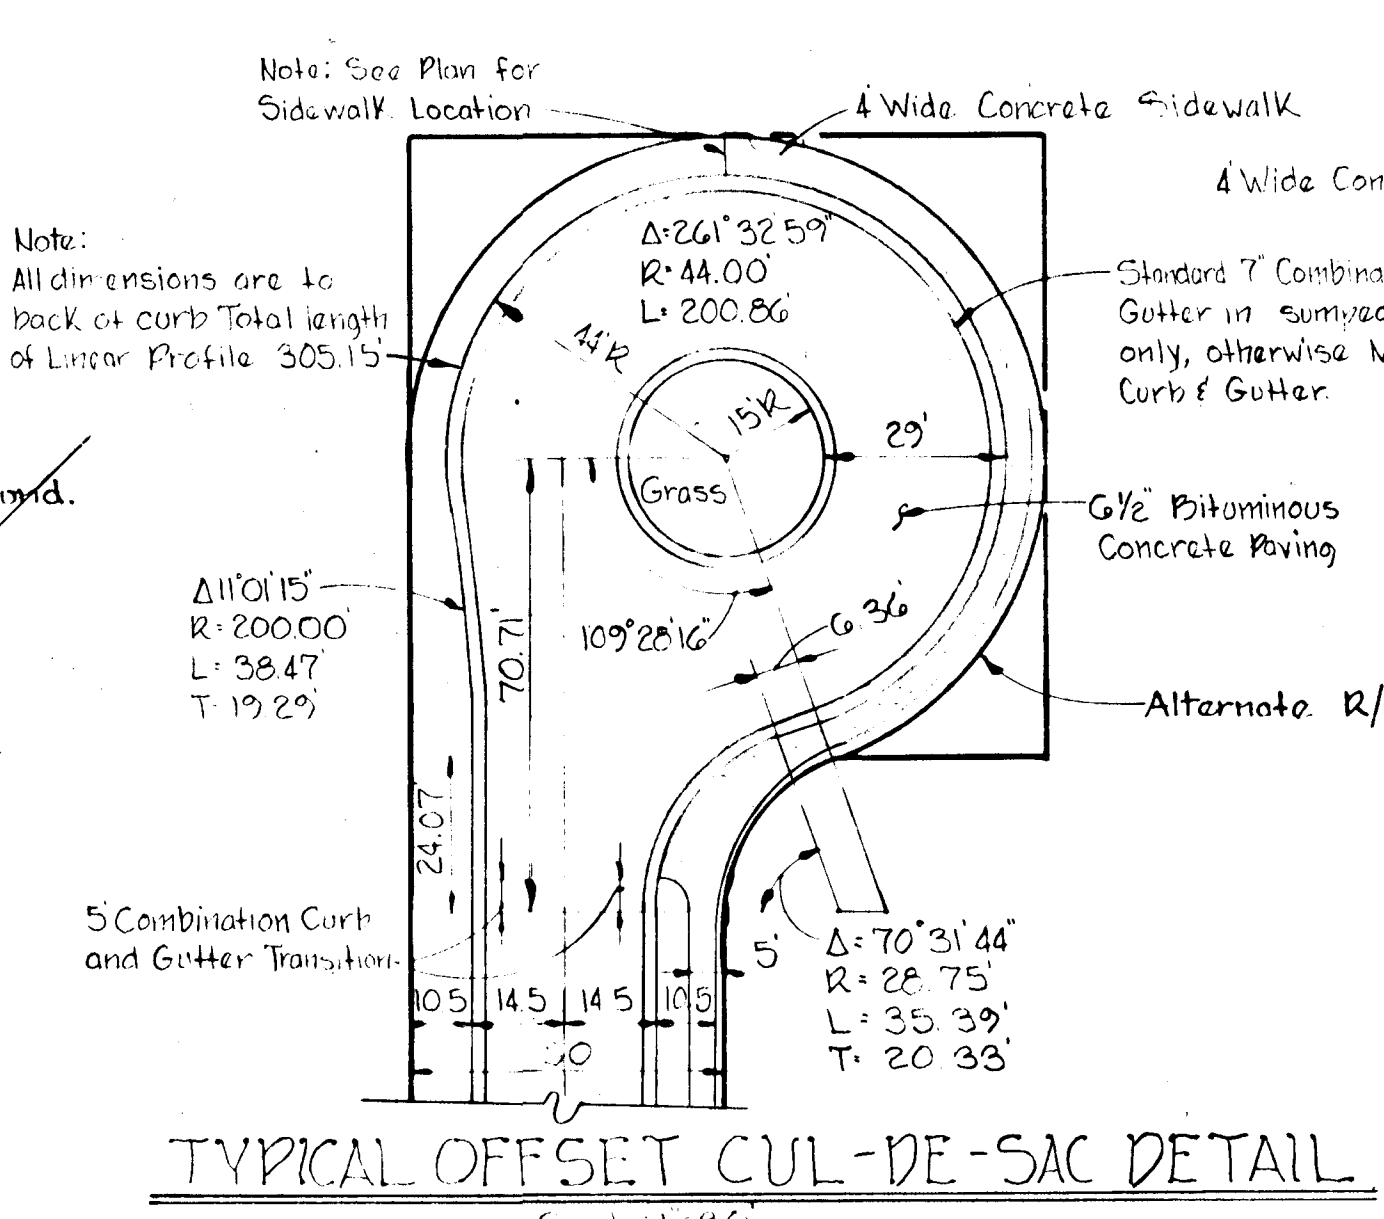 Note: See Plan for
Sidewalk Location
4' Wide Concrete Sidewalk
4' Wide Con
Note:
All dimensions are to
back of curb Total length
of Linear Profile 305.15'
Δ=261°32'59"
R=44.00'
L=200.86'
Standard 7" Combina
Gutter in sumped
only, otherwise M
Curb & Gutter.
44'R
15'R
29'
Grass
6½" Bituminous
Concrete Paving
Δ11°01'15"
R=200.00'
L=38.47'
T=19.29'
70.71'
109°28'16"
6.36'
Alternate R/
24.07'
5' Combination Curb
and Gutter Transition
5'
Δ=70°31'44"
R=28.75'
L=35.39'
T=20.33'
10.5 14.5 14.5 10.5
TYPICAL OFFSET CUL-DE-SAC DETAIL